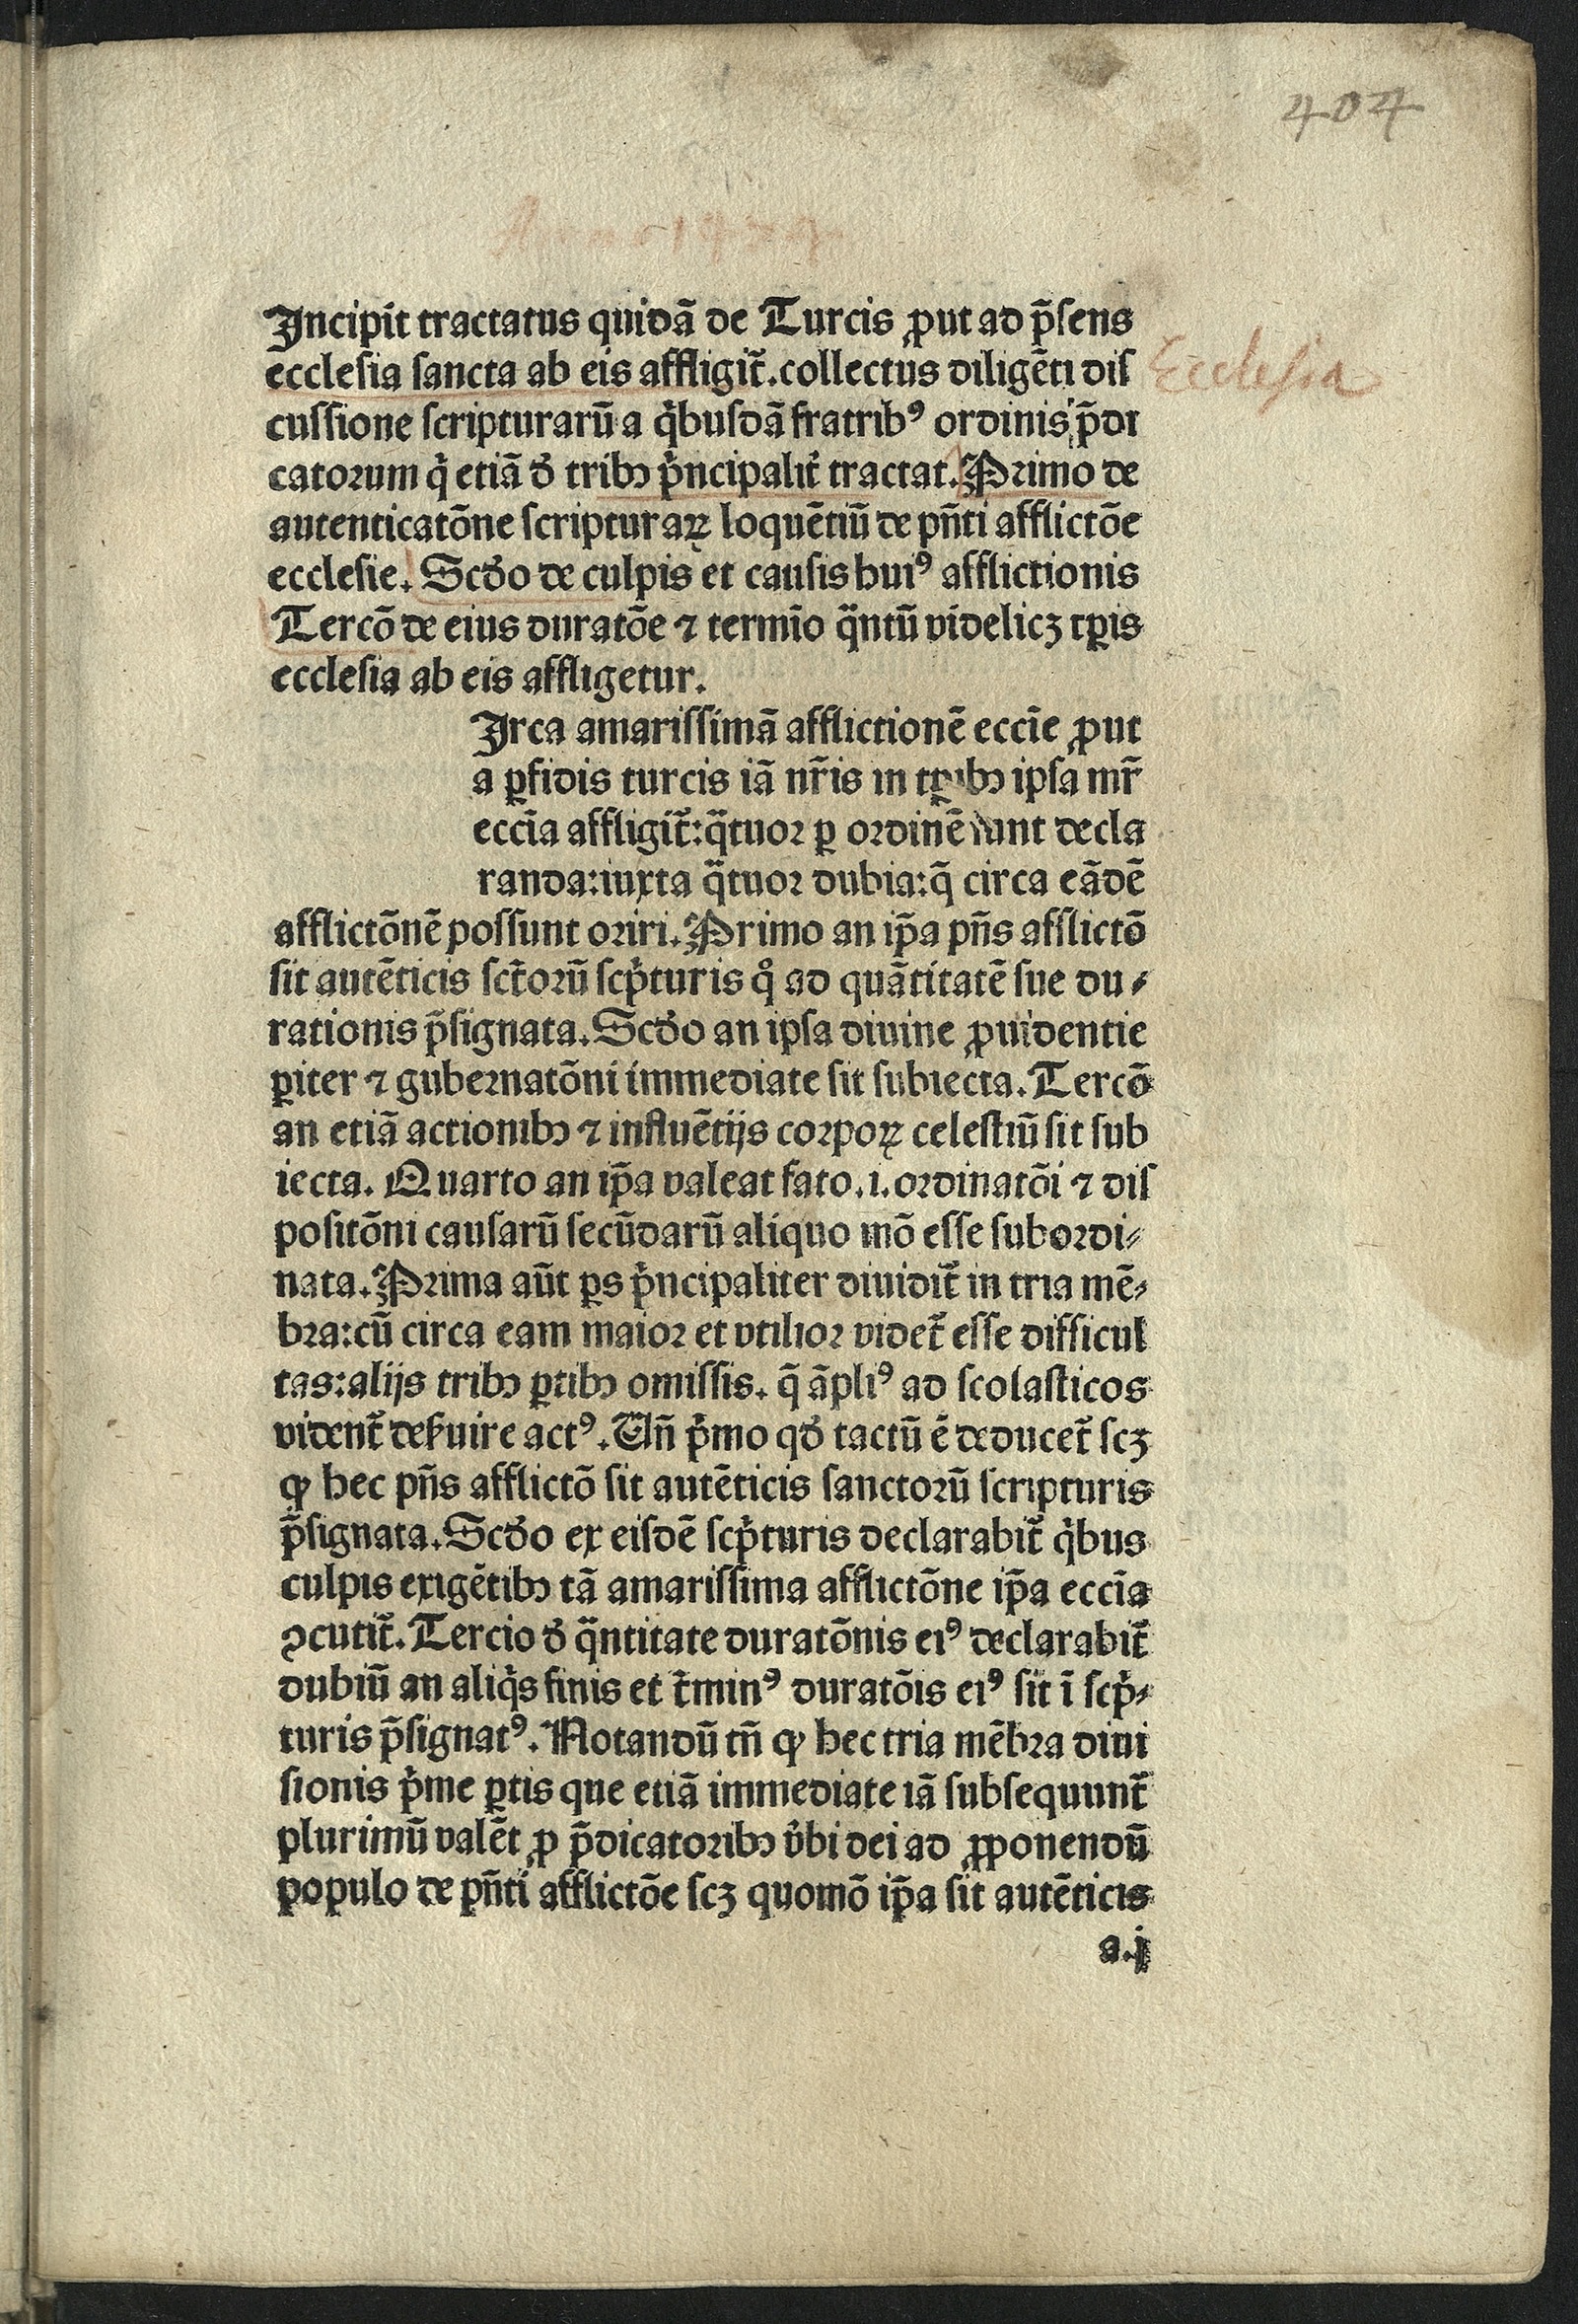 404
Incipit tractatus quidā de Turcis ꝓut ad p̄sens
ecclesia sancta ab eis affligit̄. collectus diligēti dis
Ecclesia
cussione scripturarū a qͥbusdā fratribꝰ ordinis p̄di
catorum qͥ etiā đ tribꝫ pͥncipalit̄ tractat. Primo de
autenticatōne scripturaꝝ loquētiū de pn̄ti afflictōe
ecclesie. Scđo de culpis et causis huiꝰ afflictionis
Tercō de eius duratōe ⁊ termīo qᷓntū videlicꝫ tꝑis
ecclesia ab eis affligetur.
Irca amarissimā afflictionē eccīe ꝓut
a ꝑfidis turcis iā nr̄is in tꝑibꝫ ipsa mr̄
eccīa affligit̄: qᷓtuor ꝑ ordinē sunt decla
randa: iuxta qᷓtuor dubia: q̄ circa eādē
afflictōnē possunt oriri. Primo an ip̄a pn̄s afflictō
sit autēticis sct̄orū scpͥturis qͦ ad quātitatē sue du⸗
rationis p̄signata. Scđo an ipsa diuine ꝓuidentie
ꝑiter ⁊ gubernatōni immediate sit subiecta. Tercō
an etiā actionibꝫ ⁊ influētijs corpoꝝ celestiū sit sub
iecta. Quarto an ip̄a valeat fato .i. ordinatōi ⁊ dis
positōni causarū secūdarū aliquo mō esse subordi⸗
nata. Prima aūt ꝑs pͥncipaliter diuidit̄ in tria mē⸗
bra: cū circa eam maior et vtilior videt̄ esse difficul
tas: alijs tribꝫ ꝑtibꝫ omissis. q̄ āpliꝰ ad scolasticos
vident̄ deẜuire actꝰ. Un̄ pͥmo qđ tactū ē deducet̄ scꝫ
ꝙ hec pn̄s afflictō sit autēticis sanctorū scripturis
p̄signata. Scđo ex eisdē scpͥturis declarabit̄ qͥbus
culpis exigētibꝫ tā amarissima afflictōne ip̄a eccīa
ꝯcutit̄. Tercio đ qᷓntitate duratōnis eiꝰ declarabit̄
dubiū an aliqͥs finis et t̄minꝰ duratōis eiꝰ sit ī scpͥ⸗
turis p̄signatꝰ. Notandū tn̄ ꝙ hec tria mēbra diui
sionis pͥme ꝑtis que etiā immediate iā subsequunt̄
plurimū valēt ꝓ p̄dicatoribꝫ v̄bi dei ad ꝓponendū
populo de pn̄ti afflictōe scꝫ quomō ip̄a sit autēticis
a.j